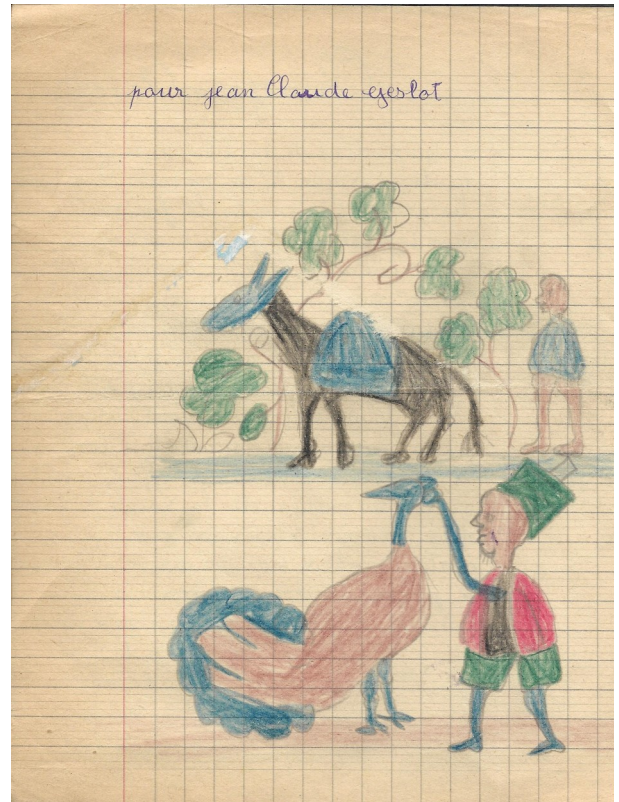 pour jean Claude geslot